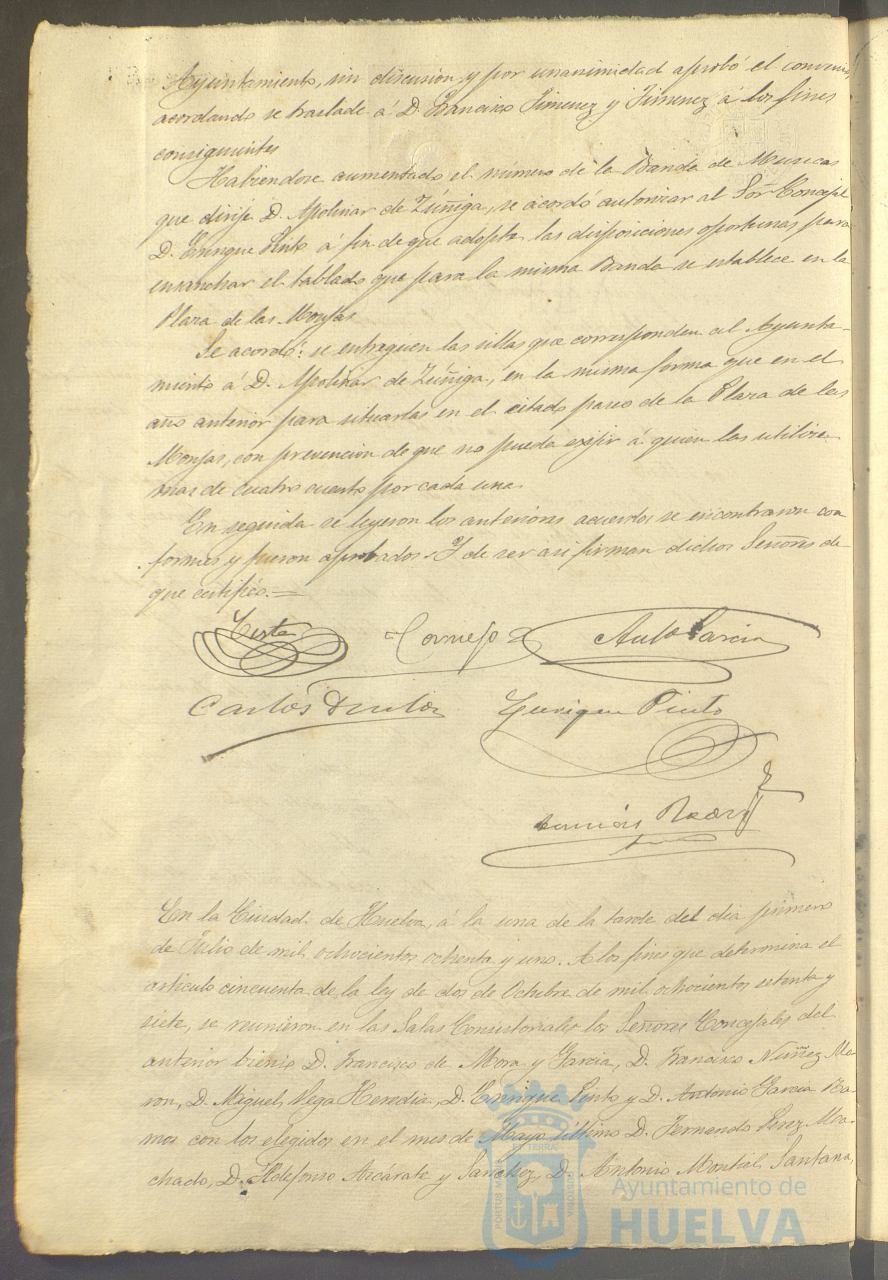 Ayuntamiento, sin discusion y por unanimidad aprobó el convenio,
acordando se traslade á D. Francisco Jimenez y Jimenez á los fines
consiguientes
Habiendose aumentado el número de la Banda de Musicas
que dirije D. Apolinar de Zúñiga, se acordó autorizar al Sor Concejal
D. Enrique Pinto á fin de que adopte las disposiciones oportunas para
ensanchar el tablado que para la misma Banda se establece en la
Plaza de las Monjas
Se acordó: se entreguen las sillas que corresponden al Ayunta-
miento á D. Apolinar de Zúñiga, en la misma forma que en el
año anterior para situarlas en el citado paseo de la Plaza de las
Monjas, con prevencion de que no pueda exijir á quien las utilize
mas de cuatro cuartos por cada una
En seguida se leyeron los anteriores acuerdos se encontraron con
formes y fueron aprobados. Y de ser asi firman dichos Señores de
que certifico.=
Cornejo Anto Garcia
Carlos Enrique Pinto
En la Ciudad de Huelva, á la una de la tarde del dia primero
de Julio de mil ochocientos ochenta y uno. A los fines que determina el
articulo cincuenta de la ley de dos de Octubre de mil ochocientos setenta y
siete, se reunieron en las Salas Consistoriales los Señores Concejales del
anterior bienio D. Francisco de Mora y Garcia, D. Francisco Nuñez Mo-
ron, D. Miguel Vega Heredia, D. Enrique Pinto y D. Antonio Garcia Ra-
mos con los elegidos en el mes de Mayo último D. Fernando Perez Ma-
chado, D. Ildefonso Azcárate y Sanchez, D. Antonio Montiel Santana,
Ayuntamiento de
HUELVA